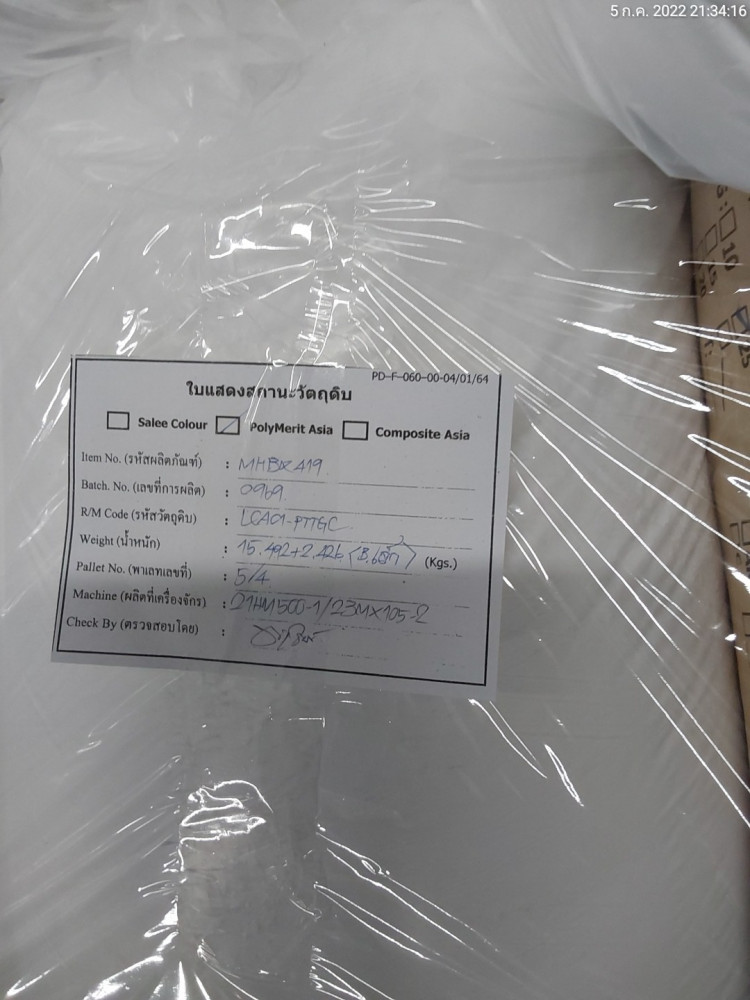 5 ก.ค. 2022 21:34:16
PD-F-060-00-04/01/64
ใบแสดงสถานะวัตถุดิบ
Salee Colour PolyMerit Asia Composite Asia
Item No. (รหัสผลิตภัณฑ์) : MHBX419
Batch. No. (เลขที่การผลิต) : 0969
R/M Code (รหัสวัตถุดิบ) : LCA01-PTTGC
Weight (น้ำหนัก) : 15.492+2.426 (Kgs.)
Pallet No. (พาเลทเลขที่) : 5/4
Machine (ผลิตที่เครื่องจักร) : 21HM500-1/23MX105-2
Check By (ตรวจสอบโดย) :
10